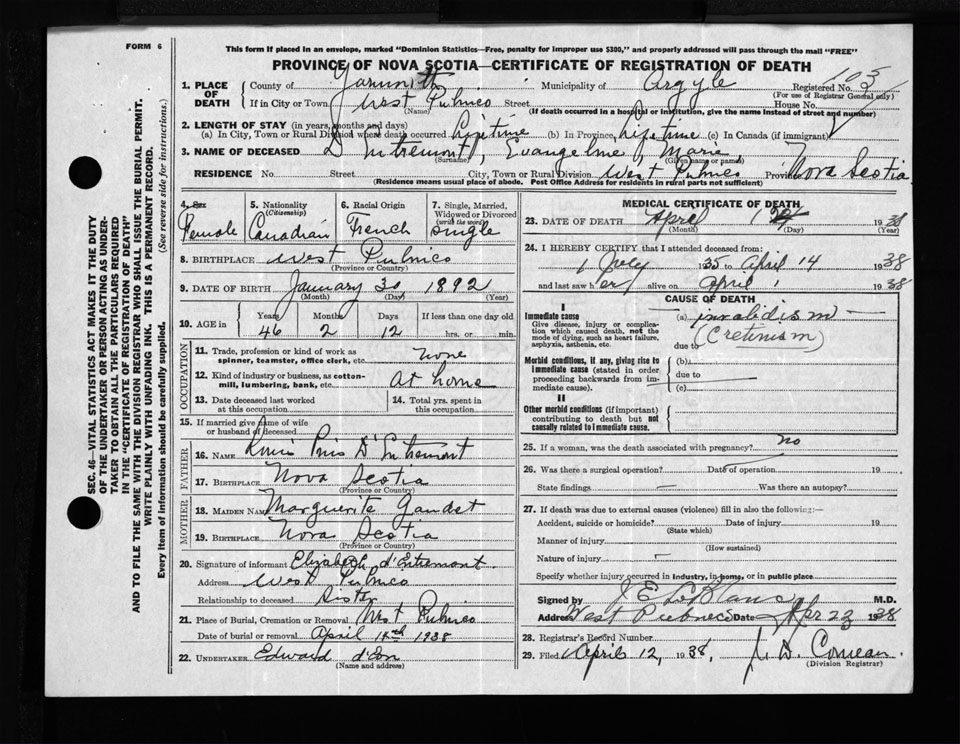 FORM 6
This form if placed in an envelope, marked "Dominion Statistics—Free, penalty for improper use $300," and properly addressed will pass through the mail "FREE"
PROVINCE OF NOVA SCOTIA—CERTIFICATE OF REGISTRATION OF DEATH
1. PLACE OF DEATH
County of Yarmouth Municipality of Argyle Registered No. 103
(For use of Registrar General only)
If in City or Town West Pubnico Street House No.
(Name) (If death occurred in a hospital or institution, give the name instead of street and number)
2. LENGTH OF STAY (in years, months and days)
(a) In City, Town or Rural Division where death occurred Lifetime (b) In Province Lifetime (c) In Canada (if immigrant)
3. NAME OF DECEASED D'Entremont, Evangeline, Marie
(Surname) (Given name or names)
RESIDENCE No. Street City, Town or Rural Division West Pubnico Province Nova Scotia
(Residence means usual place of abode. Post Office Address for residents in rural parts not sufficient)
4. Sex
Female
5. Nationality (Citizenship)
Canadian
6. Racial Origin
French
7. Single, Married, Widowed or Divorced (write the word)
Single
8. BIRTHPLACE West Pubnico
(Province or Country)
9. DATE OF BIRTH January 30, 1892
(Month) (Day) (Year)
10. AGE in Years Months Days If less than one day old
46 2 12 hrs. or min.
OCCUPATION
11. Trade, profession or kind of work as spinner, teamster, office clerk, etc. none
12. Kind of industry or business, as cotton-mill, lumbering, bank, etc. At home
13. Date deceased last worked at this occupation
14. Total yrs. spent in this occupation
15. If married give name of wife or husband of deceased
FATHER
16. NAME Louis Pius D'Entremont
17. BIRTHPLACE Nova Scotia
(Province or Country)
MOTHER
18. MAIDEN NAME Marguerite Gaudet
19. BIRTHPLACE Nova Scotia
(Province or Country)
20. Signature of informant Elizabeth d'Entremont
Address West Pubnico
Relationship to deceased Sister
21. Place of Burial, Cremation or Removal West Pubnico
Date of burial or removal April 14th 1938
22. UNDERTAKER Edward d'Eon
(Name and address)
MEDICAL CERTIFICATE OF DEATH
23. DATE OF DEATH April 1938
(Month) (Day) (Year)
24. I HEREBY CERTIFY that I attended deceased from:
1 July 1935 to April 14 1938
and last saw her alive on April 1 1938
CAUSE OF DEATH
I
Immediate cause
Give disease, injury or complication which caused death, not the mode of dying, such as heart failure, asphyxia, asthenia, etc.
(a) invalidism
due to (Cretinism)
Morbid conditions, if any, giving rise to immediate cause (stated in order proceeding backwards from immediate cause).
(b)
due to
(c)
II
Other morbid conditions (if important) contributing to death but not causally related to immediate cause.
25. If a woman, was the death associated with pregnancy? no
26. Was there a surgical operation? Date of operation 19
State findings — Was there an autopsy?
27. If death was due to external causes (violence) fill in also the following:—
Accident, suicide or homicide? Date of injury 19
(State which)
Manner of injury
(How sustained)
Nature of injury —
Specify whether injury occurred in industry, in home, or in public place
Signed by J E LeBlanc M.D.
Address West Pubnico Date Apr 23 1938
28. Registrar's Record Number
29. Filed April 12, 1938, Comeau
(Division Registrar)
SEC. 46—VITAL STATISTICS ACT MAKES IT THE DUTY
OF THE UNDERTAKER OR PERSON ACTING AS UNDER-
TAKER TO OBTAIN ALL THE PARTICULARS REQUIRED
IN THE "CERTIFICATE OF REGISTRATION OF DEATH"
AND TO FILE THE SAME WITH THE DIVISION REGISTRAR WHO SHALL ISSUE THE BURIAL PERMIT.
WRITE PLAINLY WITH UNFADING INK. THIS IS A PERMANENT RECORD.
Every item of information should be carefully supplied. (See reverse side for instructions.)